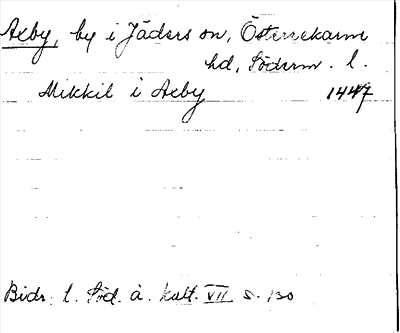 Aeby, by i Jäders sn, Österrekarne
hd, Söderm. l.
Mikkil i Aeby 1447
Bidr. t. Söd. ä. kult. VII s. 130